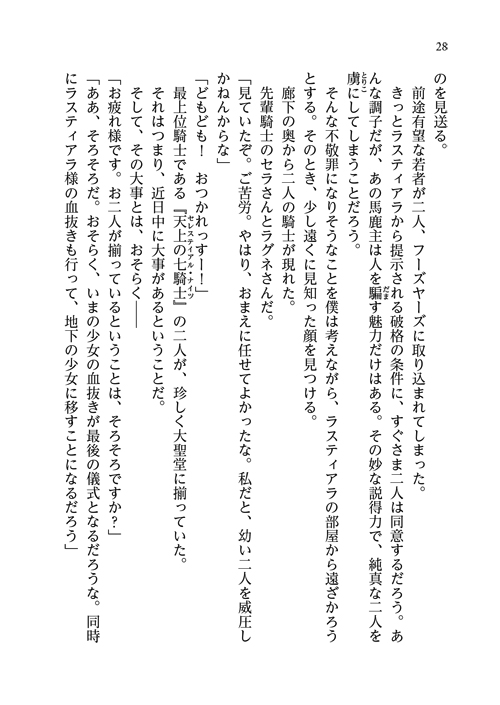 28
のを見送る。
前途有望な若者が二人、フーズヤーズに取り込まれてしまった。
きっとラスティアラから提示される破格の条件に、すぐさま二人は同意するだろう。あ
んな調子だが、あの馬鹿主は人を騙す魅力だけはある。その妙な説得力で、純真な二人を
虜にしてしまうことだろう。
そんな不敬罪になりそうなことを僕は考えながら、ラスティアラの部屋から遠ざかろう
とする。そのとき、少し遠くに見知った顔を見つける。
廊下の奥から二人の騎士が現れた。
先輩騎士のセラさんとラグネさんだ。
「見ていたぞ。ご苦労。やはり、おまえに任せてよかったな。私だと、幼い二人を威圧し
かねんからな」
「どもども！　おつかれっすー！」
最上位騎士である『天上の七騎士』の二人が、珍しく大聖堂に揃っていた。
それはつまり、近日中に大事があるということだ。
そして、その大事とは、おそらく――
「お疲れ様です。お二人が揃っているということは、そろそろですか？」
「ああ、そろそろだ。おそらく、いまの少女の血抜きが最後の儀式となるだろうな。同時
にラスティアラ様の血抜きも行って、地下の少女に移すことになるだろう」